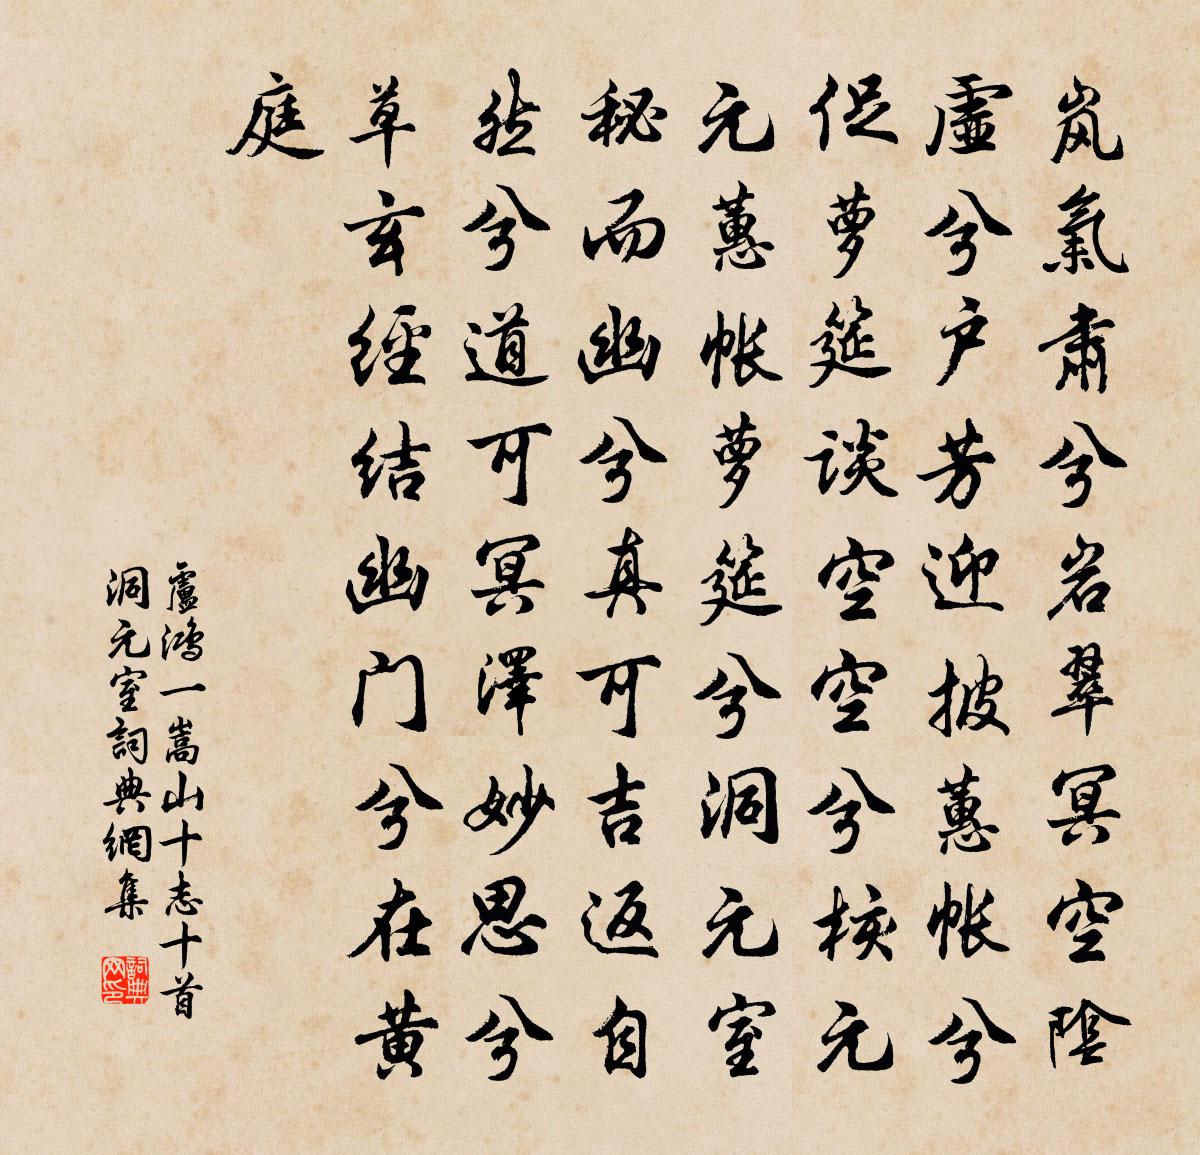 岚氣肅兮岩翠冥空陰
虛兮户芳迎披蕙帐兮
促萝筵谈空空兮核元
元蕙帐萝筵兮洞元室
秘而幽兮真可吉返自
然兮道可冥澤妙思兮
草玄經结幽门兮在黄
庭
盧鴻一嵩山十志十首
洞元室詞典網集
詞典
网印